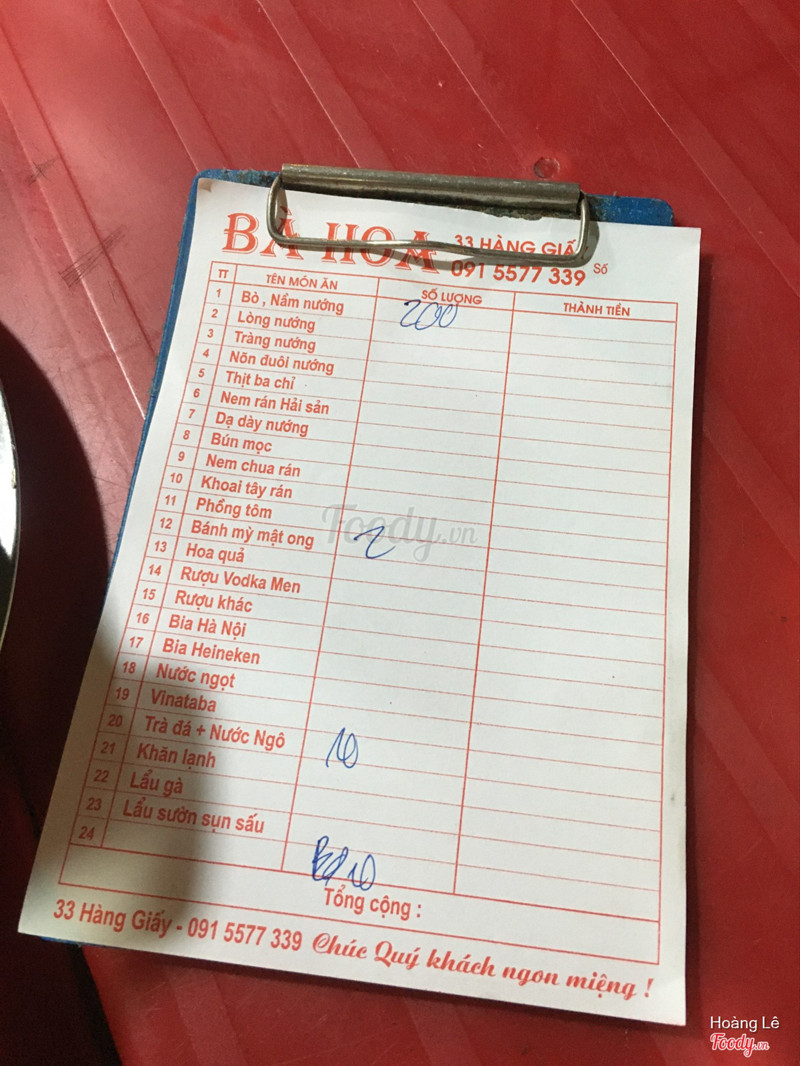 BÀ HOA 33 HÀNG GIẤY
091 5577 339 Số
TT TÊN MÓN ĂN SỐ LƯỢNG THÀNH TIỀN
1 Bò , Nầm nướng 200
2 Lòng nướng
3 Tràng nướng
4 Nõn đuôi nướng
5 Thịt ba chỉ
6 Nem rán Hải sản
7 Dạ dày nướng
8 Bún mọc
9 Nem chua rán
10 Khoai tây rán
11 Phồng tôm
12 Bánh mỳ mật ong 2
13 Hoa quả
14 Rượu Vodka Men
15 Rượu khác
16 Bia Hà Nội
17 Bia Heineken
18 Nước ngọt
19 Vinataba
20 Trà đá + Nước Ngô
21 Khăn lạnh 10
22 Lẩu gà
23 Lẩu sườn sụn sấu
24
Tổng cộng :
33 Hàng Giấy - 091 5577 339 Chúc Quý khách ngon miệng !
Foody.vn
Hoàng Lê
Foody.vn